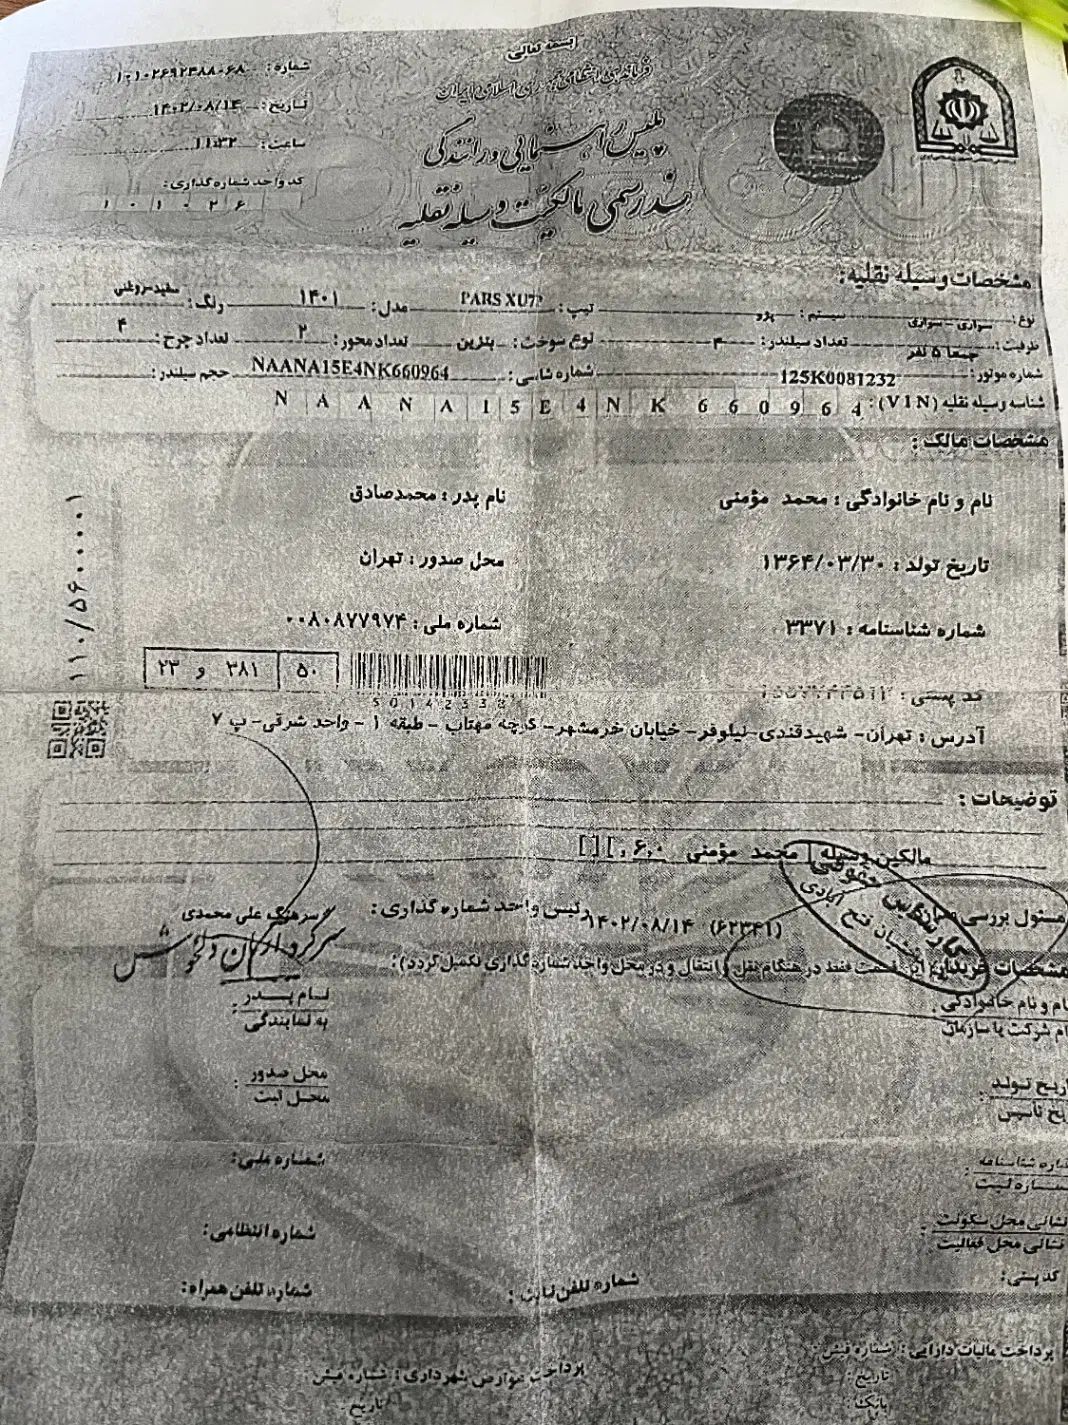 بسمه تعالی
فرماندهی انتظامی جمهوری اسلامی ایران
پلیس راهنمایی و رانندگی
سند رسمی مالکیت وسیله نقلیه
شماره:
تاریخ: ۱۴۰۲/۰۸/۱۴
ساعت: ۱۱:۳۲
کد واحد شماره گذاری:
۱ ۰ ۱ ۰ ۲ ۶
مشخصات وسیله نقلیه:
نوع: سواری - سواری سیستم: پژو تیپ: PARS XU7P مدل: ۱۴۰۱ رنگ: سفید-روغنی
ظرفیت: جمعا ۵ نفر تعداد سیلندر: ۴ نوع سوخت: بنزین تعداد محور: ۲ تعداد چرخ: ۴
شماره موتور: 125K0081232 شماره شاسی: NAANA15E4NK660964 حجم سیلندر:
شناسه وسیله نقلیه (VIN): N A A N A 1 5 E 4 N K 6 6 0 9 6 4
مشخصات مالک:
نام و نام خانوادگی: محمد مؤمنی نام پدر: محمدصادق
تاریخ تولد: ۱۳۶۴/۰۳/۳۰ محل صدور: تهران
شماره شناسنامه: ۳۳۷۱ شماره ملی: ۰۰۸۰۸۷۷۹۷۴
۵۰ ۳۸۱ و ۲۳
کد پستی:
50142338
آدرس: تهران- شهیدقندی-نیلوفر- خیابان خرمشهر- کوچه مهتاب - طبقه ۱ - واحد شرقی- پ ۷
توضیحات:
مالکین وسیله محمد مؤمنی ۶,۰ ,[][]
کارشناس حقوقی
فتح آبادی
مسئول بررسی (۶۲۳۴۱) ۱۴۰۲/۰۸/۱۴ رئیس واحد شماره گذاری: سرهنگ علی محمدی
سرگرد
مشخصات خریدار: (این قسمت فقط در هنگام نقل و انتقال و در محل واحد شماره گذاری تکمیل گردد):
نام و نام خانوادگی: نام پدر:
نام شرکت یا سازمان به نمایندگی
تاریخ تولد: محل صدور:
تاریخ تأسیس محل ثبت
شماره شناسنامه: شماره ملی:
شماره ثبت
نشانی محل سکونت: شماره انتظامی:
نشانی محل فعالیت
کد پستی: شماره تلفن ثابت: شماره تلفن همراه:
پرداخت مالیات دارایی: شماره فیش: پرداخت عوارض شهرداری: شماره فیش:
تاریخ: تاریخ:
بانک: